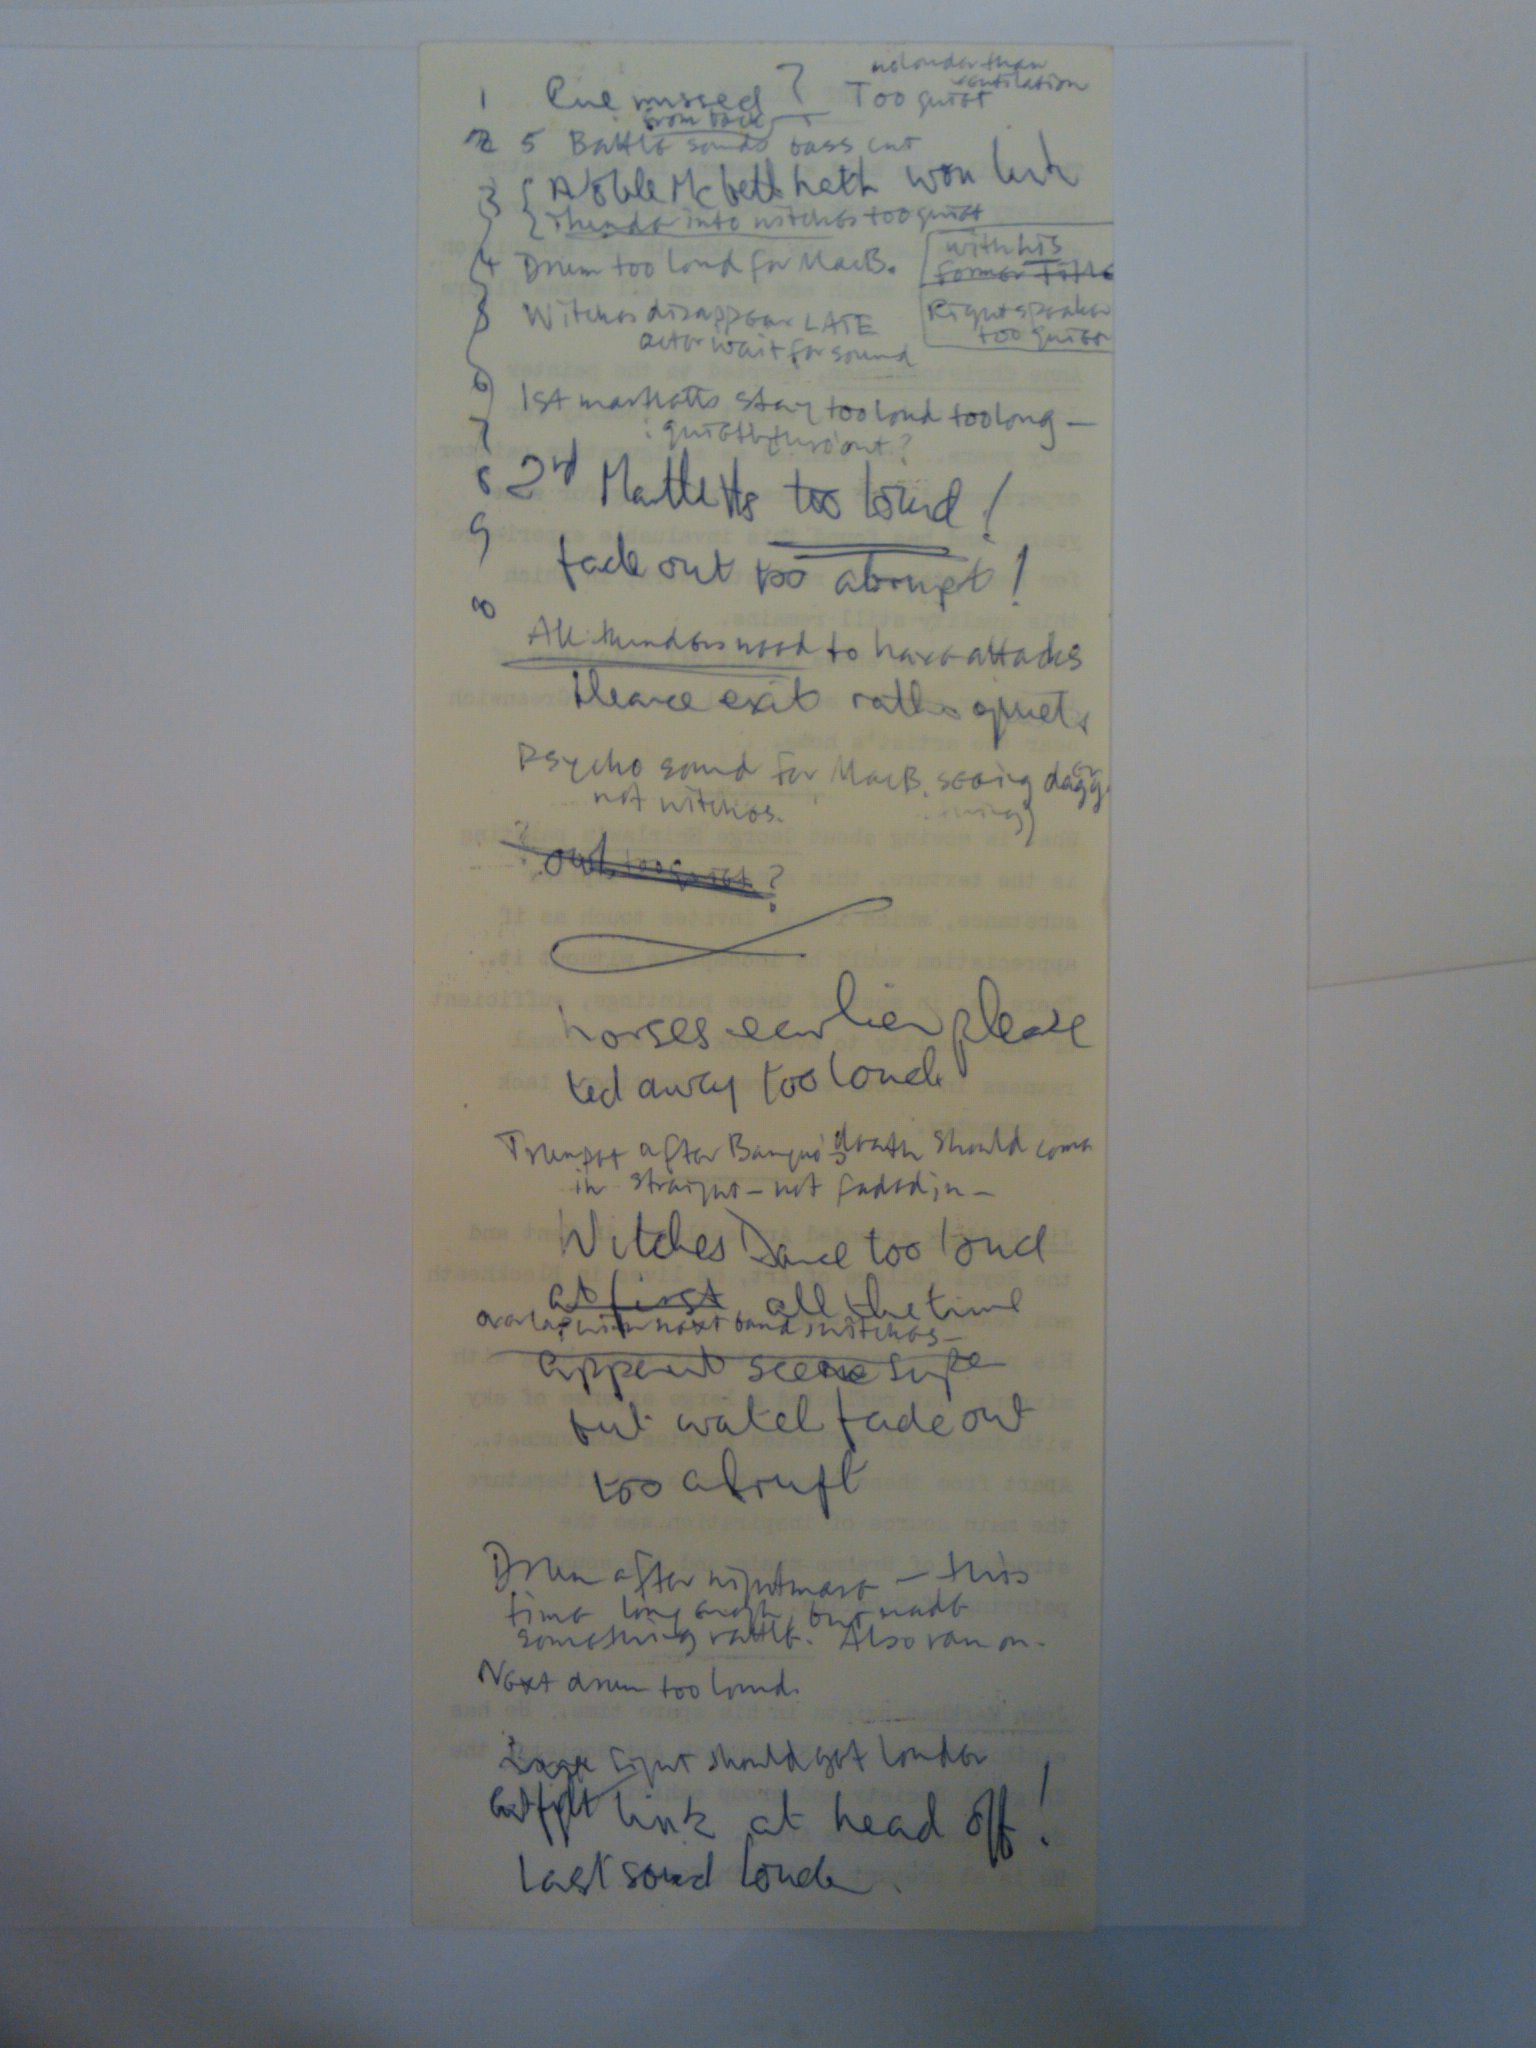 no louder than
ventilation
1 Cue missed ? Too quiet
from back
2 5 Battle sounds bass cut
3 { Noble McBeth hath won link
{ Thunder into witches too quiet
with his
former title
4 Drum too loud for MacB.
Right speaker
too quiet
5 Witches disappear LATE
actor wait for sound
6 1st martletts stay too loud too long —
7 : quieter thro'out ?
8 2nd Martletts too loud !
9
fade out too abrupt !
All thunders need to have attacks
Fleance exit rather quiet.
Psycho sound for MacB. seeing dagger
not witches. things)
? Owl too quiet ?
horses earlier please
led away too loud
Trumpet after Banquo's death should come
in straight — not faded in —
Witches Dance too loud
at first all the time
overlap with next band switches —
apparit scene supe
but watch fade out
too abrupt
Drum after nightmare — this
time long enough, but made
something rattle. Also ran on.
Next drum too loud.
fight should get louder
link at head off !
Last sound louder.